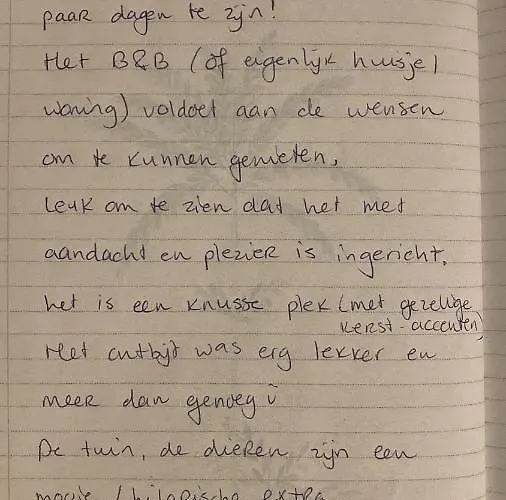 paar dagen te zijn!
Het B&B (of eigenlijk huisje/
woning) voldoet aan de wensen
om te kunnen genieten,
Leuk om te zien dat het met
aandacht en plezier is ingericht.
het is een knusse plek (met gezellige
kerst-accenten)
Het ontbijt was erg lekker en
meer dan genoeg ü
De tuin, de dieren zijn een
mooie / hilarische extra